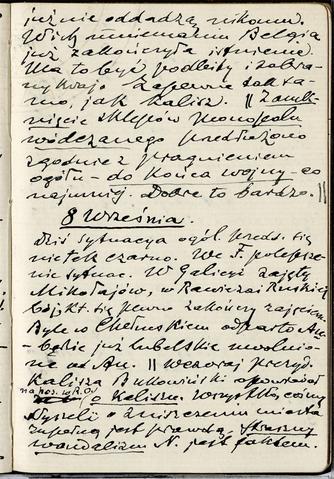 już nie oddadzą nikomu.
W ich mniemaniu Belgia
już zakończyła istnienie.
Ma to być podbity i zabra-
ny kraj. Zapewne tak sa-
mo, jak Kalisz. || Zamk-
nięcie sklepów monopolu
wódczanego przedłużono
zgodnie z pragnieniem
ogółu - do końca wojny co
najmniej. Dobre to bardzo. ||
8 września.
Dziś sytuacya ogól. przeds. się
nie tak czarno. We F. polepsze-
nie sytuac. W Galicyi zajęty
Mikołajów, w Rawie Ruskiej
bój, kt. się pewno zakończy zajęciem.
Byle w Chełmskiem odparto Au-
będzie już lubelskie uwolnio-
ne od Au. || Wczoraj prezyd.
Kalisza Bukowiński opowiadał
na pos. w R. O.
o Kaliszu. Wszystko, cośmy
słyszeli o zniszczeniu miasta
zupełną jest prawdą, straszny
wandalizm N. jest faktem.